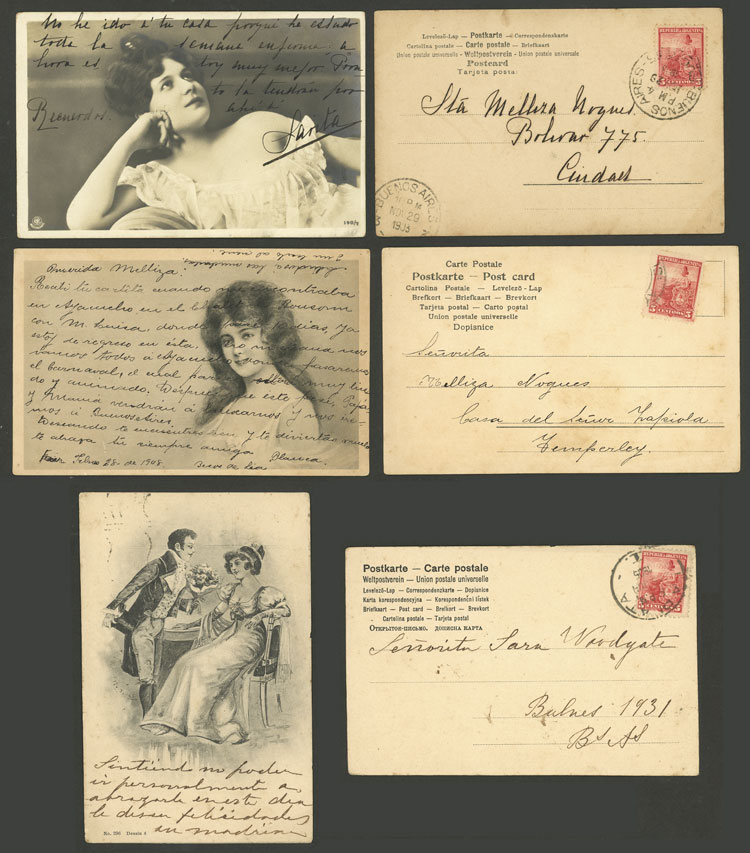 No he ido á tu casa porque he estado
toda la semana enferma a
hora es toy muy mejor
to la tendran por
Recuerdos. ahi
Sarita
Levelező-Lap — Postkarte — Correspondenzkarte
Cartolina postale — Carte postale — Briefkaart
Union postale universelle — Weltpostverein — Union postale universelle
Postcard
Tarjeta postal
REPUBLICA ARGENTINA
5 CENTAVOS 5
BUENOS AIRES
Sta Melliza Nogues
Bolivar 775.
Ciudad
BUENOS AIRES
NOV 29
Querida Melliza:
Recibí tu cartita cuando me encontraba
en Ayacucho en el
con M. Luisa donde dias, ya
estoy de regreso en esta.
vamos todos á Ayacucho pasaremos
el Carnaval, el cual para muy lin
do y animado. Despues que esto pase, Papá
y Mamá vendran á buscarnos y nos ire-
mos á Buenos Aires.
Deseando te encuentres bien y te diviertas mucho
te abraza tu siempre amiga
Febro 28 de 1908 Blanca.
Carte Postale
Postkarte — Post card
Cartolina Postale — Levelező - Lap
Brefkort — Briefkaart — Brevkort
Tarjeta postal — Carto postal
Union postale universelle
Dopisnice
REPUBLICA ARGENTINA
5 CENTAVOS 5
Señorita
Melliza Nogues
Casa del Señor Zapiola
Temperley.
Sintiendo no poder
ir personalmente a
abrazarte en este dia
le desea felicidades
su madrina
No. 596 Dessin 4
Postkarte — Carte postale
Weltpostverein — Union postale universelle
Levelező-Lap — Correspondenzkarte — Dopisnice
Karta korespondencyjna — Korespondenční lístek
Briefkaart — Post card — Brefkort — Brevkort
Cartolina postale — Tarjeta postal
Открытое-письмо. дописна карта
REPUBLICA ARGENTINA
5 CENTAVOS 5
Señorita Sara Woodgate
Bulnes 1931
Bs As